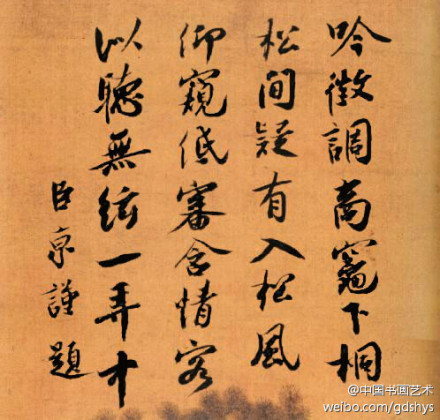 吟徵調商竈下桐
松間疑有入松風
仰窺低審含情客
似聽無絃一弄中
臣京謹題
@中国书画艺术
weibo.com/gdshys